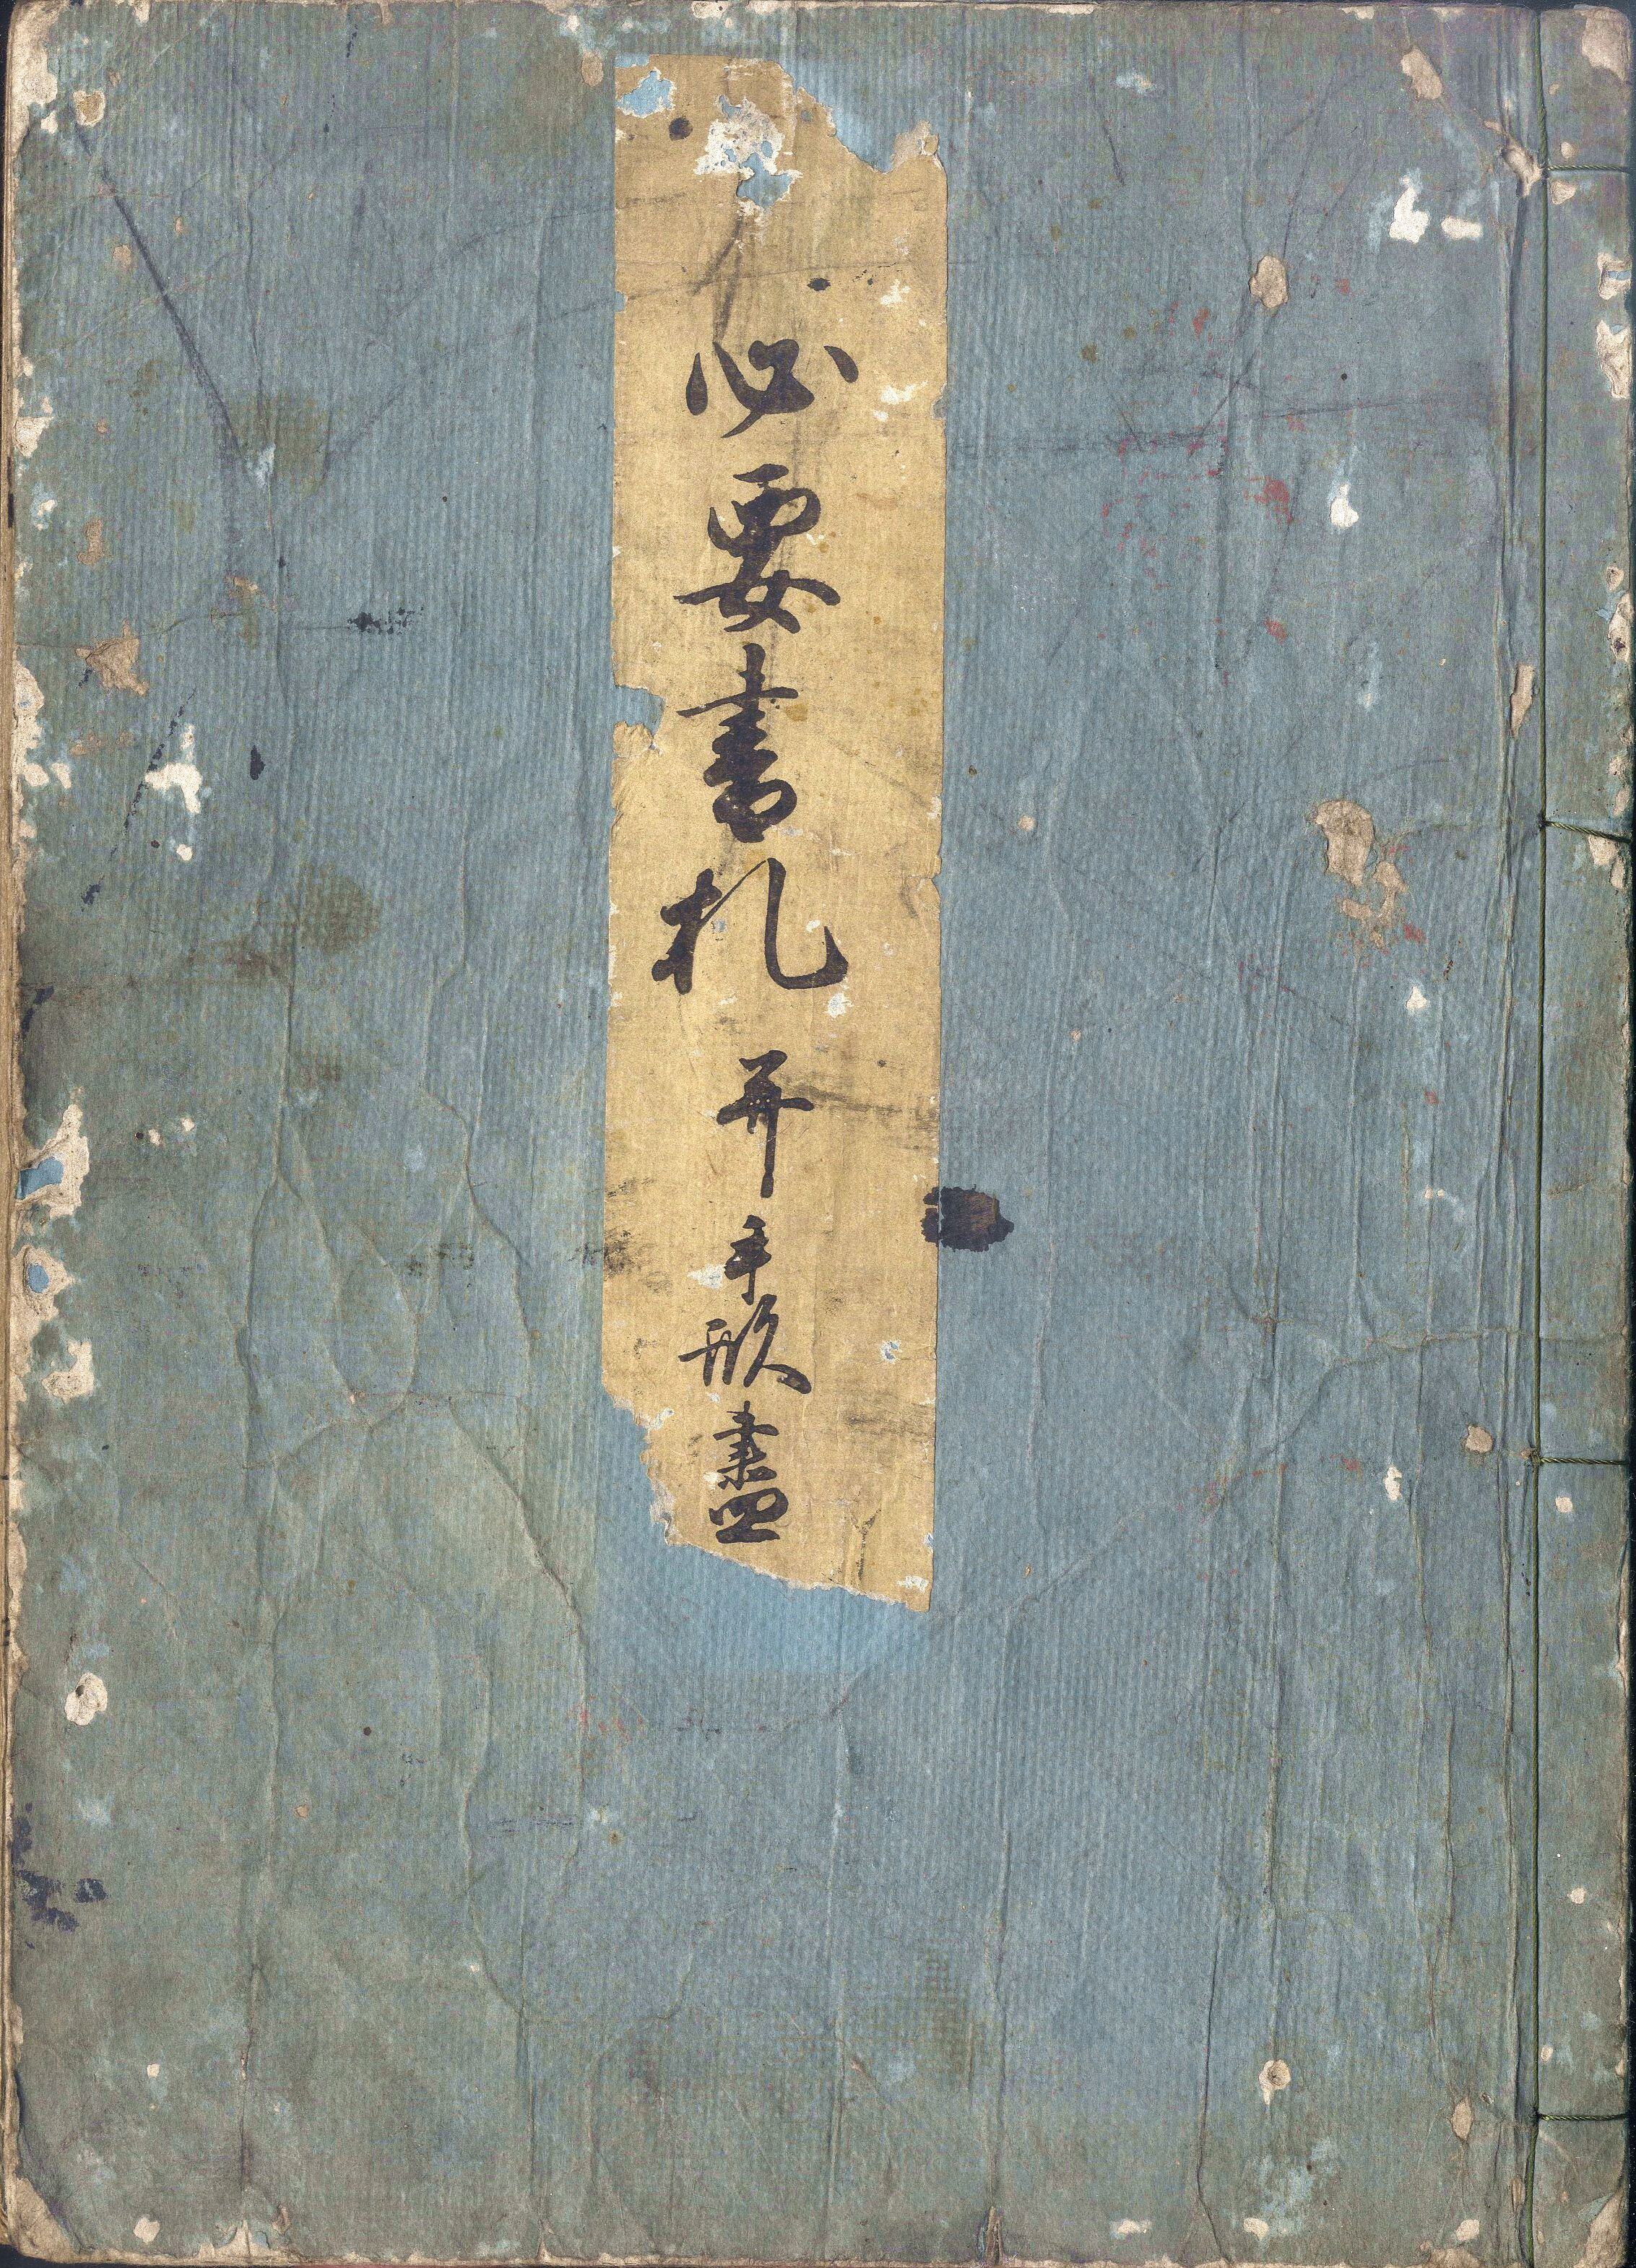 必要書札 并手形盡